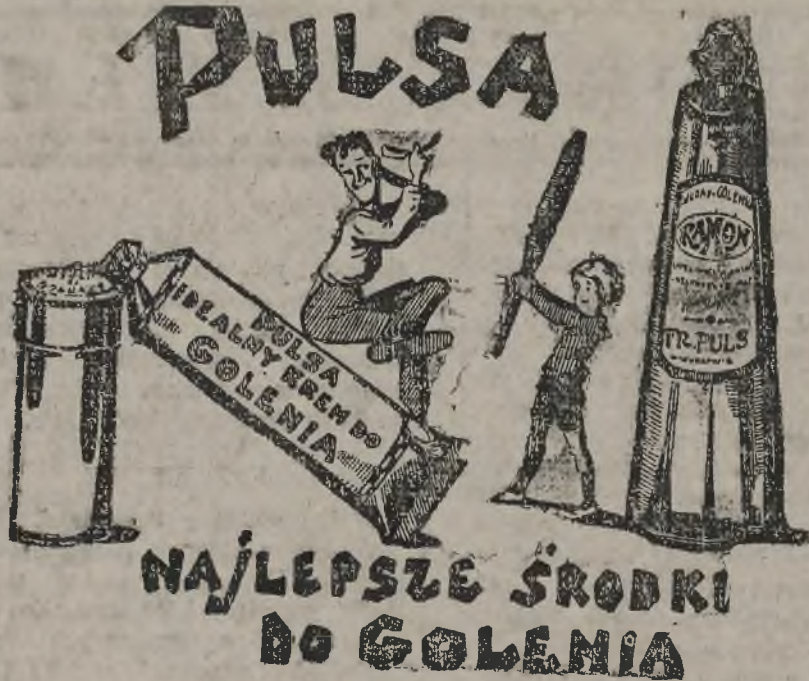 PULSA
PULSA
IDEALNY KREM DO
GOLENIA
RAMON
FR. PULS
NAJLEPSZE ŚRODKI
DO GOLENIA